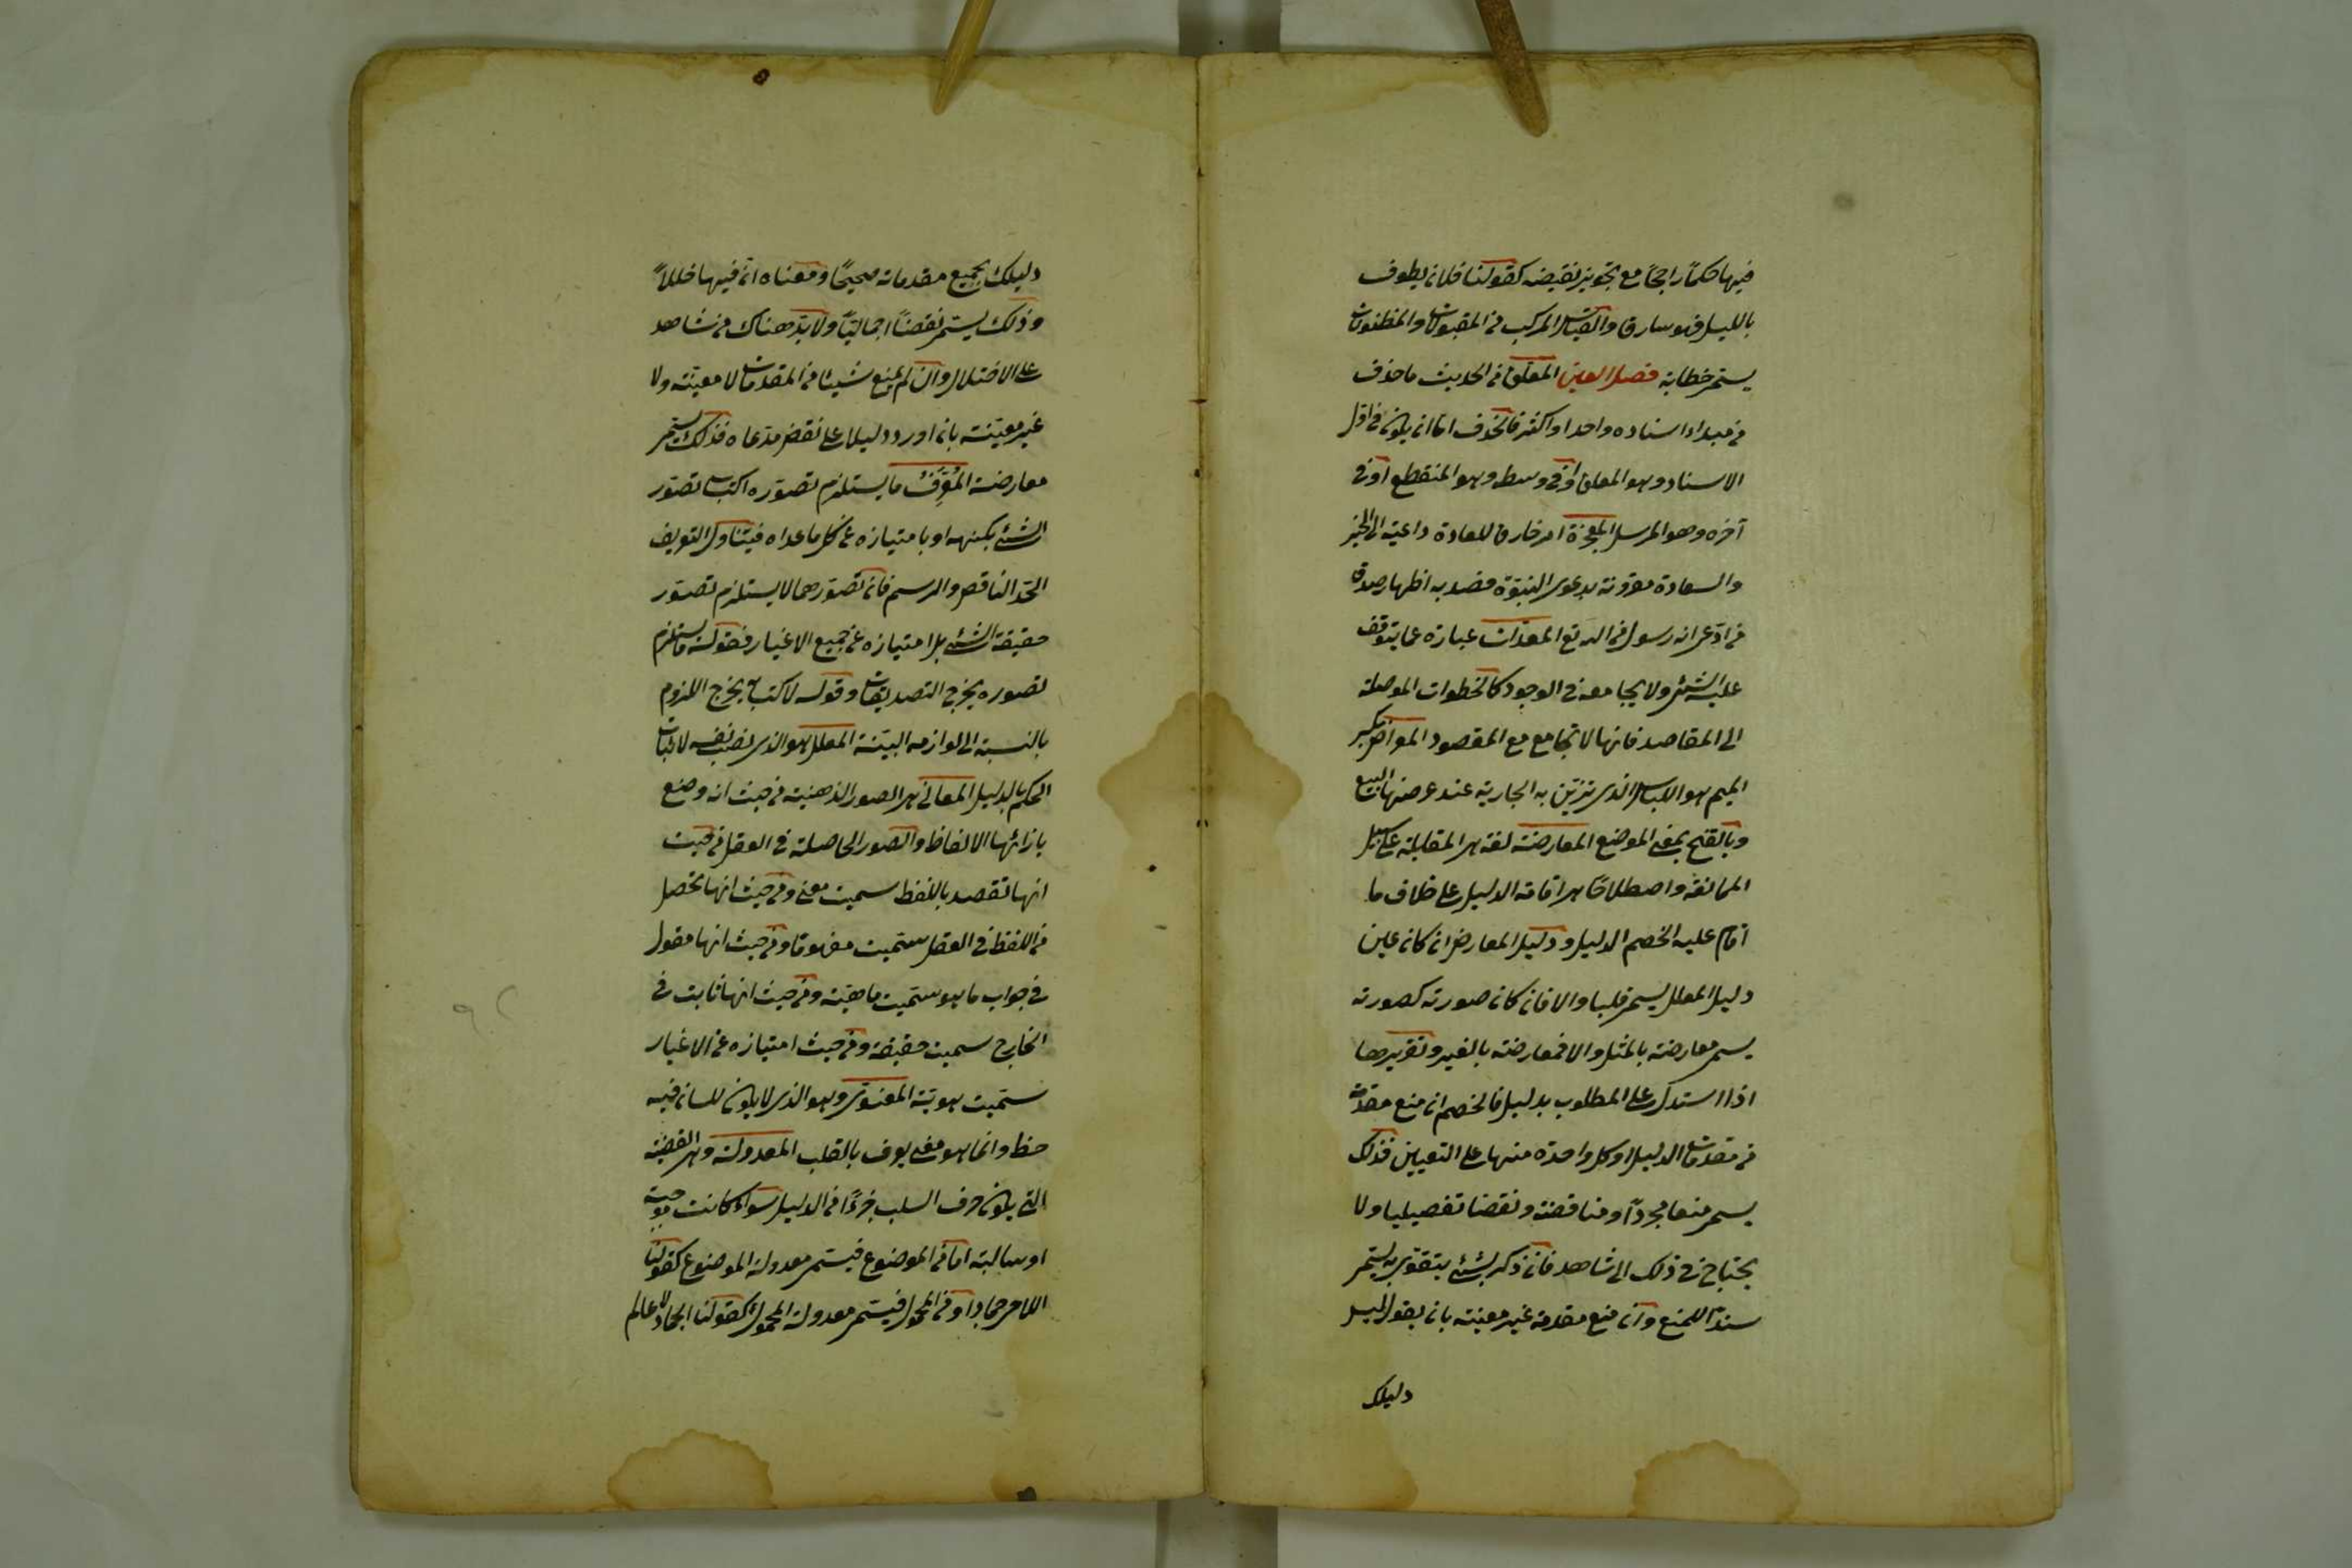 فيها حكماً راجحاً مع تجويز نقيضه كقولنا فلان يطوف
بالليل فهو سارق والقياس المركب من المقبولات والمظنونات
يسمى خطابة فصل العين المعلق من الحديث ما حذف
من مبداء اسناده واحدا واكثر فالحذف اما ان يكون في اول
الاسناد وهو المعلق او في وسط وهو المنقطع او في
آخره وهو المرسل المعجزة امر خارق للعادة داعية الى الخير
والسعادة مقرونة بدعوى النبوة قصد به اظهار صدق
من ادعى انه رسول من الله تع المعدّات عبارة عما يتوقف
عليه الشئ ولا يجامعه في الوجود كالخطوات الموصلة
الى المقاصد فانها لا تجامع مع المقصود المعراض بكسر
الميم هو اللباس الذى تتزين به الجارية عند عرضها للبيع
وبالفتح بمعنى الموضع المعارضة لغة هى المقابلة على سبيل
الممانعة واصطلاحا هى اقامة الدليل على خلاف ما
اقام عليه الخصم الدليل ودليل المعارض ان كان عين
دليل المعلل يسمى قلبا والا فان كان صورته كصورته
يسمى معارضة بالمثل والا فمعارضة بالغير وتقريرها
اذا استدل على المطلوب بدليل فالخصم ان منع مقدمة
من مقدمات الدليل او كل واحدة منها على التعيين فذلك
يسمى منعا مجرداً ومناقضة ونقضا تفصيليا ولا
يحتاج في ذلك الى شاهد فان ذكر شئ يتقوى به يسمى
سنداً للمنع وان منع مقدمة غير معينة بان يقول ليس
دليلك
دليلك بجميع مقدماته صحيحًا ومعناه ان فيها خللاً
وذلك يسمى نقضاً اجماليّاً ولا بدّ هناك من شاهد
على الاختلال وان لم يمنع شيئا من المقدمات لا معينة ولا
غير معينة بان اورد دليلا على نقض مدعاه فذلك يسمى
معارضة المُعَرِّفُ ما يستلزم تصوّره اكتساب تصوّر
الشئ بكنهه او بامتيازه عن كل ما عداه فيتناول التعريف
الحدّ الناقص والرسم فان تصوّرهما لا يستلزم تصوّر
حقيقة الشئ بل امتيازه عن جميع الاغيار فقوله ما يستلزم
تصوره يخرج التصديقات وقوله اكتساب يخرج الملزوم
بالنسبة الى لوازمه البيّنة المعلل هو الذى نصب نفسه لاثبات
الحكم بالدليل المعانى هى الصور الذهنية من حيث انه وضع
بازائها الالفاظ والصور الحاصلة في العقل من حيث
انها تقصد باللفظ سميت معنى ومن حيث انها تحصل
من اللفظ في العقل سمّيت مفهوما ومن حيث انها مقول
في جواب ما هو سمّيت ماهيّة ومن حيث انها ثابت في
الخارج سميت حقيقة ومن حيث امتيازه عن الاغيار
سمّيت هويّة المعنوى وهو الذى لا يكون للسان فيه
حظ وانما هو معنى يعرف بالقلب المعدولة وهى القضيّة
التى يكون حرف السلب جزءًا من الدليل سواءً كانت موجبة
او سالبة اما من الموضوع فيسمى معدولة الموضوع كقولنا
اللاحى جماد او من المحمول فيسمى معدولة المحمول كقولنا الجماد لا عالم